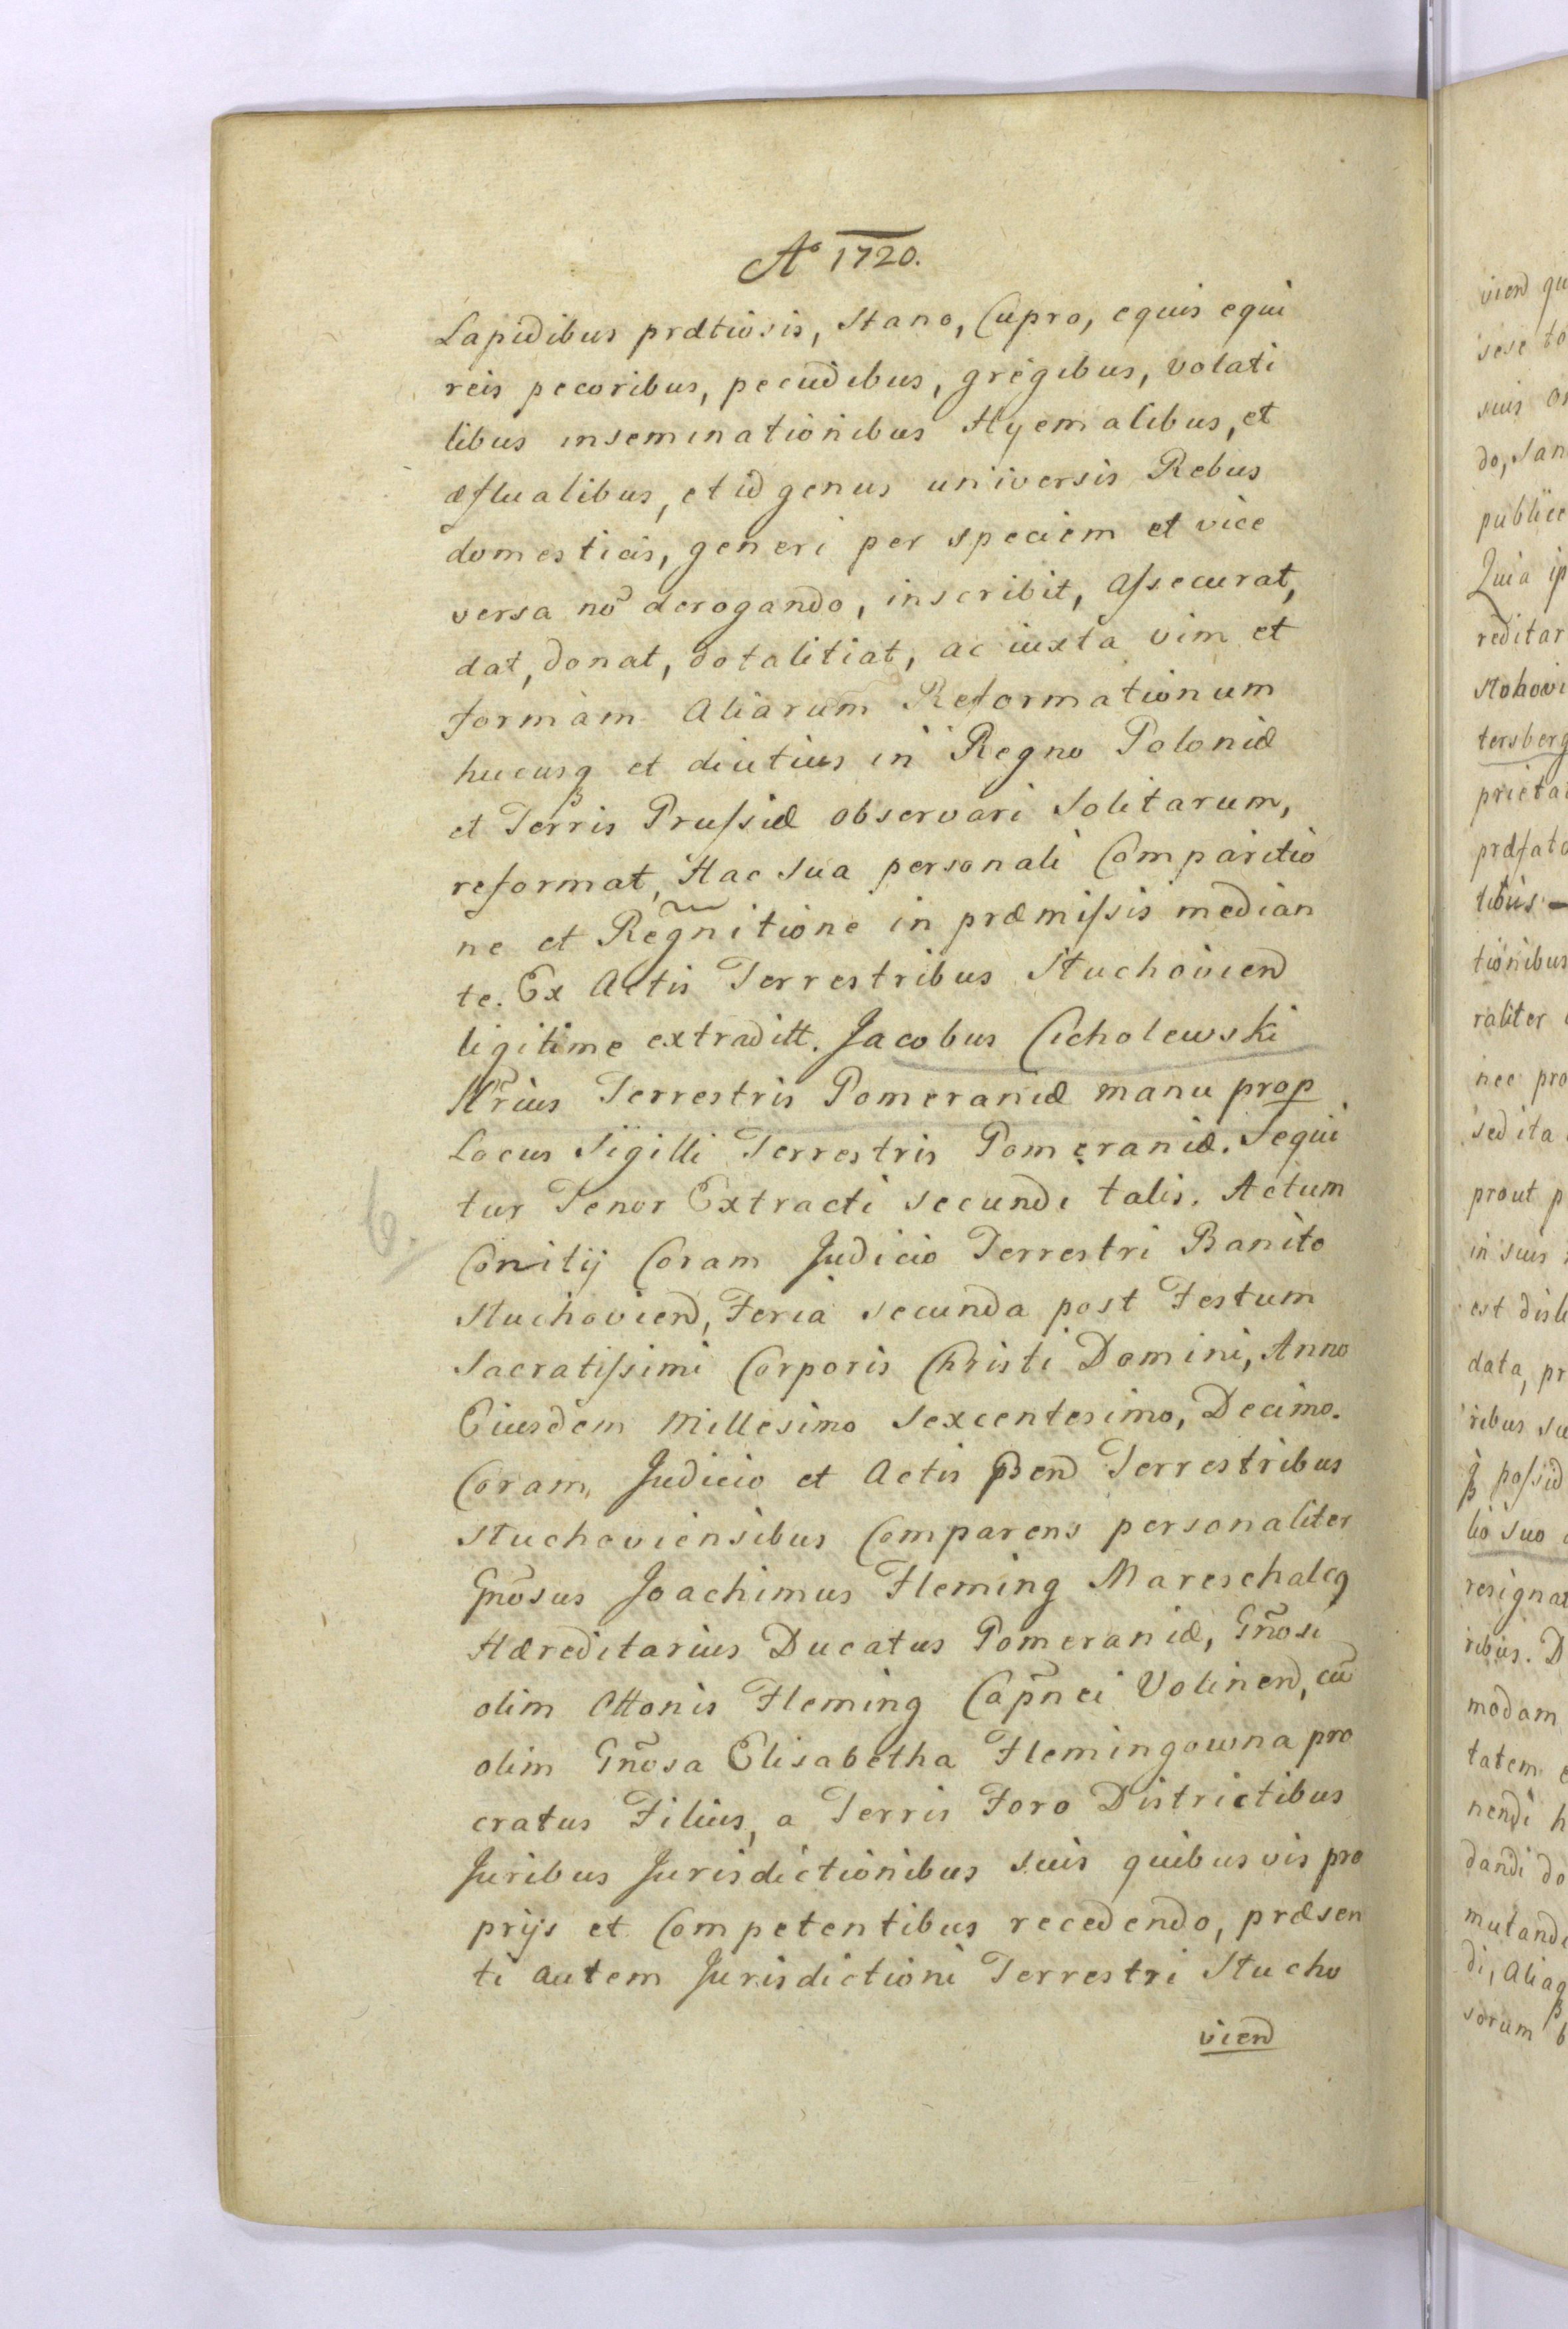 Aº 1720.
Lapidibus prætiosis, Stano, Cupro, equis equi
reis pecoribus, pecudibus, gregibus, volati
libus inseminationibus Hyemalibus, et
æstualibus, et id genus universis Rebus
domesticis, generi per speciem et vice
versa nō derogando, inscribit, assecurat,
dat, donat, dotalitiat, ac iuxta vim et
formam Aliarum Reformationum
hucusq et diutius in Regno Poloniæ
et Terris Prussiæ observari Solitarum,
reformat, Hac sua personali Comparitio
ne et Regn̄itione in præmissis median
te. Ex Actis Terrestribus Stuchovien
ligitime extraditt. Jacobus Cicholewski
Nr̄ius Terrestris Pomeraniæ manu prop
Locus Sigilli Terrestris Pomeraniæ. Sequi
tur Tenor Extracti secundi talis. Actum
6.
Conitij Coram Judicio Terrestri Banito
Stuchovien, Feria secunda post Festum
Sacratissimi Corporis Christi Domini, Anno
Eiusdem Millesimo Sexcentesimo, Decimo.
Coram, Judicio et Actis Pben Terrestribus
Stuchoviensibus Comparens personaliter
Gn̄osus Joachimus Fleming Mareschalcq
Hæreditarius Ducatus Pomeraniæ, Gn̄osi
olim Ottonis Fleming Cap̄nei Volinen, cū
olim Gn̄osa Elisabetha Flemingowna pro
cratus Filius, a Terris Foro Districtibus
Juribus Jurisdictionibus suis quibusvis pro
prijs et Competentibus recedendo, præsen
ti autem Jurisdictioni Terrestri Stucho
vien
vien qu
sese to
suis
do, San
publice
Quia ip
reditar
Stohovi
tersberg
prieta
præfato
tibus
tionibus
raliter
nec pro
sed ita
prout p
in suis
est disl
data, pr
ribus su
possid
lio suo
resignat
ribus. D
modam
tatem
nendi h
dandi do
mutandi
di, Aliaq
sorum b